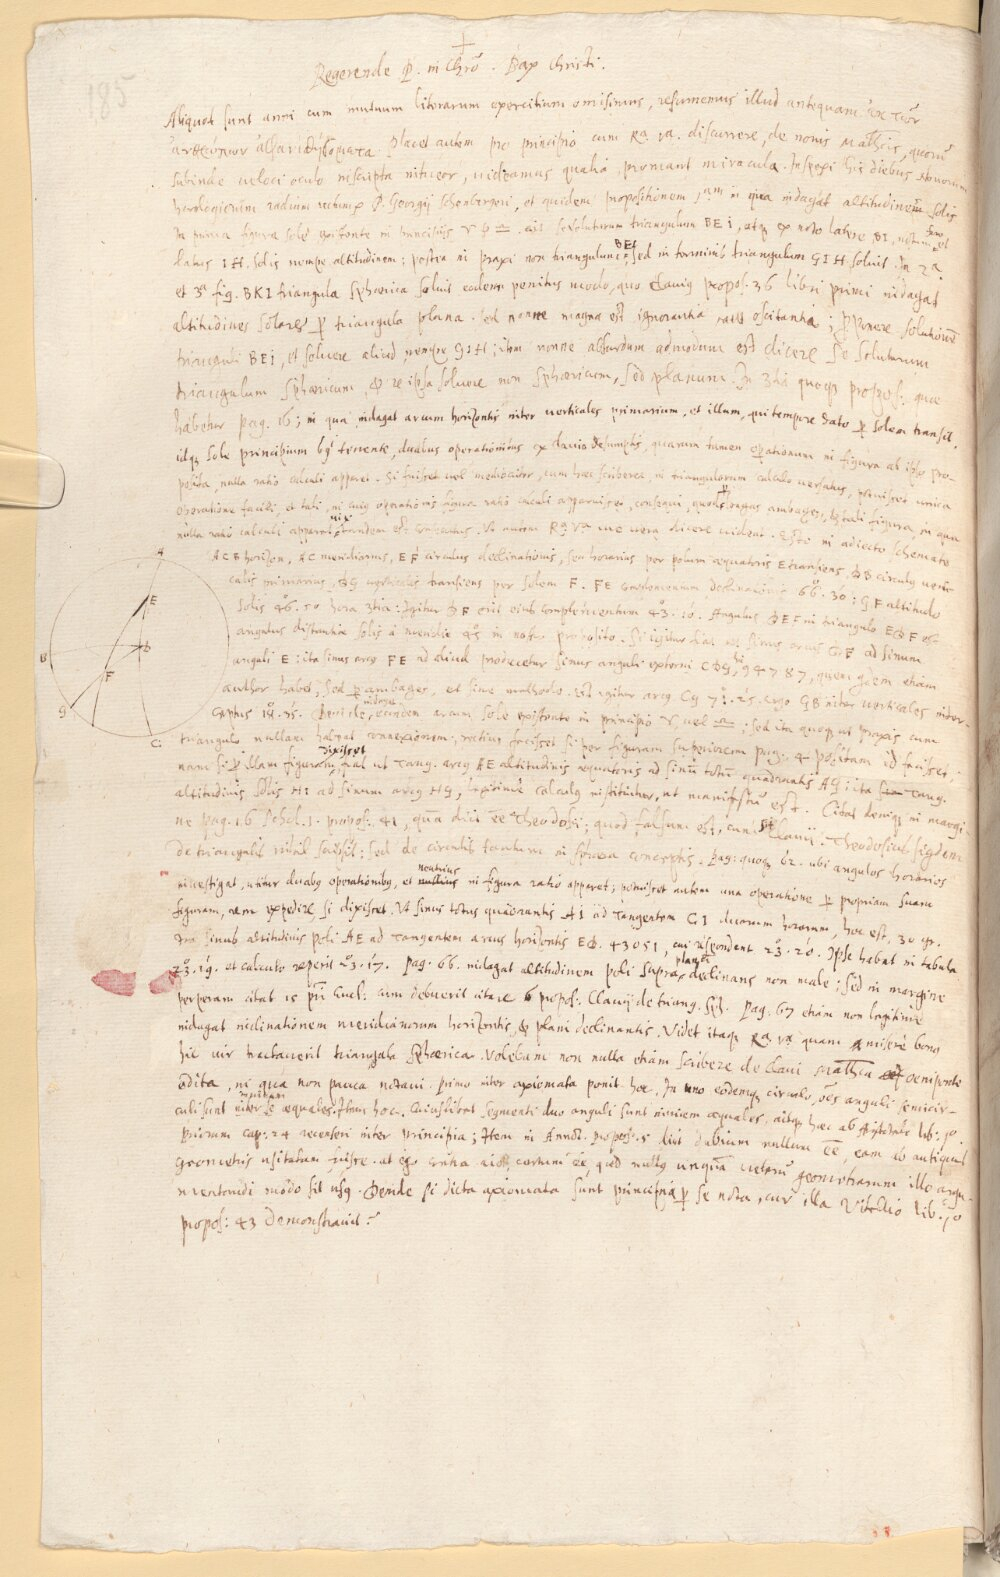 185
Reverende P. in Chrō. Pax Christi.
Aliquot sunt anni cum mutuum literarum exercitium omisimus, resumemus illud antequam ἐκ τῶν
Placet autem pro principio cum Rᵃ Vᵃ. discurrere, de nouis Mathcis, quorū
subinde ueloci oculo inscripta intueor, uideamus qualia promant miracula. Inspexi his diebus nouorum
horologiorum radium P. Georgij Schonbergeri, et quidem propositionem 1ᵃᵐ in qua indagat altitudinem Solis
In prima figura sole existente in principijs ♈ & ♎. ait se soluturum triangulum BEI, atq ex noto latere BI, notum
latus IH. Solis nempe altitudinem; postea in praxi non triangulum BEI, sed in terminis triangulum GIH soluit. In 2ᵃ
et 3ᵃ fig. BKI triangula Sphærica soluit eodem penitus modo, quo Clauius propos. 36 libri primi indagat
altitudines Solares ꝑ triangula plana. Sed nonne magna est ignorantia oscitantia; proponere solutionē
trianguli BEI, et soluere aliud nempe GIH; item nonne absurdum admodum est dicere se soluturum
triangulum Sphæricum, & re ipsa soluere non Sphæricum, sed planum. In 3tia quoq propos: quæ
habetur pag. 16; in qua indagat arcum horizontis inter verticales primarium, et illum, qui tempore dato ꝑ solem transit,
idq sole principium tenente, duabus operationibus ex Clauio desumptis, quarum tamen operationum in figura ab ipso pro-
posita, nulla ratio calculi apparet. Si fuisset uel mediocriter, cum hæc scriberet, in triangulorum calculo uersatus, potuisset unica
operatione facili, et tali, ut cuius operationis figura ratio calculi apparuisset, consequi, quod ꝑ longas ambages, & tali figura, in qua
nulla ratio calculi apparet uix tandem est consecutus. Ut autem Rᵃ Vᵃ me uera dicere uideat. Esto in adiecto schemate
ACB horizon, AC meridianus, EF circulus declinationis, seu horarius per polum æquatoris E transiens, DB circulus verti-
calis primarius, DG verticalis transiens per solem F. FE complementum declinationis 66°. 30; GF altitudo
Solis 46°. 50 hora 3tia: Igitur DF erit eius complementum 43°. 10. Angulus DEF in triangulo EDF est
angulus distantiæ solis à meridie 45° in nostro proposito. Si igitur fiat ut sinus arcus DF ad sinum
anguli E: ita sinus arcus FE ad aliud producetur sinus anguli externi CDG, 94787, quem etiam
author habet; sed ꝑ ambages, et sine methodo. Est igitur arcus CG 71°. 25. ergo GB inter verticales inter-
ceptus 18°. 35. Deinde indagat eundem arcum sole existente in principio ♈ uel ♎; sed ita quoq ut praxis cum
triangulo nullam habeat connexionem; rectius fecisset si per figuram superiorem pag: 4 positam id fecisset.
nam si ꝑ illam figuram dixisset, fiat ut tang. arcus AE altitudinis æquatoris ad sinū totū quadrantis AG: ita tang.
altitudinis solis HI ad sinum arcus HG, legitime calculus institueretur, ut manifestū est. Citat deniq in margi-
ne pag. 16 Schol. 1. propos. 41, quā dicit ēē Theodosij; quod falsum est, cum sit Clauij. Theodosius siquidem
de triangulis nihil scripsit; sed de circulis tantum in sphæra conceptis. Pag: quoq 62. ubi angulos horarios
inuestigat, utitur duabus operationibus, et neutrius in figura ratio apparet; potuisset autem una operatione ꝑ propriam suam
figuram, rem expedire, si dixisset. Ut sinus totus quadrantis AI ad tangentem GI duarum horarum, hoc est, 30 gr.
ita sinus altitudinis poli AE ad tangentem arcus horizontis ED. 43051, cui respondent 23°. 20. Ipse habet in tabula
23°. 19. et calculo reperit 23°. 17. Pag. 66. indagat altitudinem poli supra planum declinans non male; sed in margine
perperam citat 15 pri Eucl: cum debuerit citare 6 propos: Clauij de triang. Sph. Pag. 67 etiam non legitime
indagat inclinationem meridianorum horizontis, & plani declinantis. Videt itaq Rᵃ Vᵃ quam misere bono
hic uir tractauerit triangula Sphærica. Volebam non nulla etiam scribere de Clauí Mathca Oeniponte
edita, in qua non pauca notaui. Primo inter axiomata ponit hoc, In uno eodemq circulo, oēs anguli semicir-
culi sunt inter se æquales. Item hoc. Cuiuslibet segmenti duo anguli sunt inuicem æquales, aitq hæc ab Aristotele lib: 1°.
Priorum cap: 24 recenseri inter principia; Item in Annot. propos: 5 dicit dubium nullum ēē, eam antiquis
geometris usitatam fuisse. at ego contra certum ēē, quod nullus unquā ueterū geometrarum illo argu-
mentandi modo sit usus. Deinde si dicta axiomata sunt principia ꝑ se nota, cur illa Vitellio lib: 1°
propos: 43 demonstrauit?
A
E
B
D
F
G
C